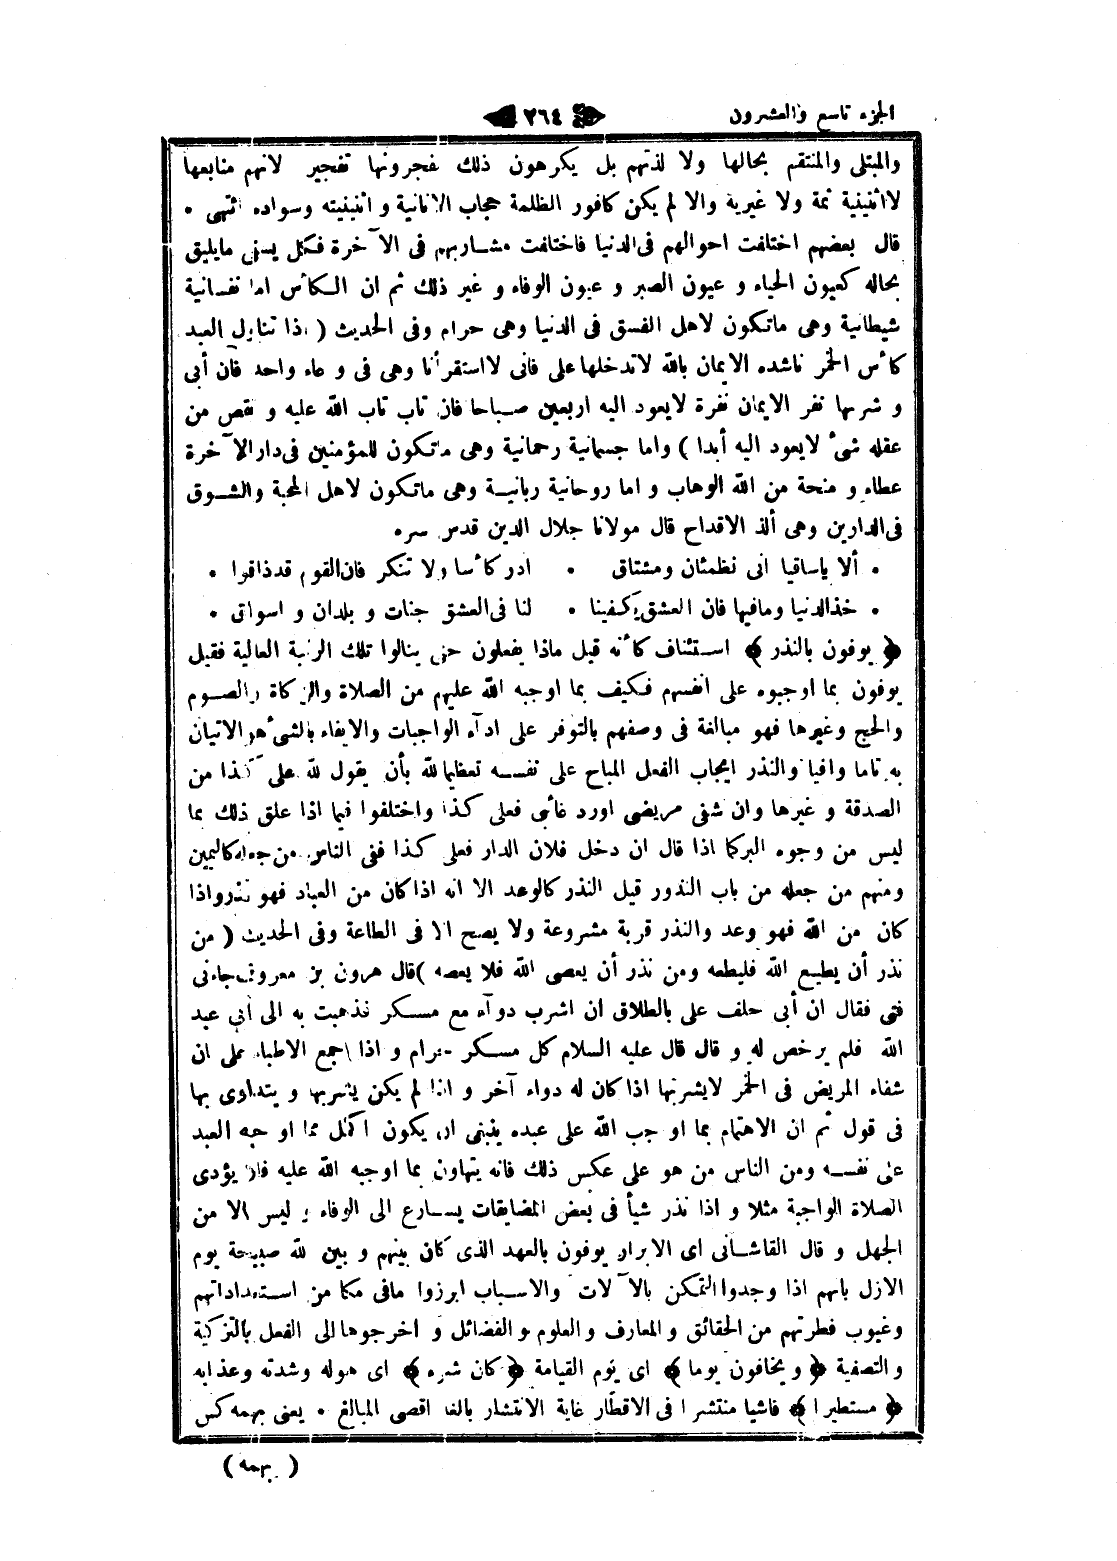 الجزء تاسع والعشرون
٢٦٤
والمبتلى والمنتقم بحالها ولا لذتهم بل يكرهون ذلك يفجرونها تفجير لانهم منابعها
لااثنينية ثمة ولا غيرية والا لم يكن كافور الظلمة حجاب الانانية و اثنينيته وسواده انتهى •
قال بعضهم اختلفت احوالهم فى الدنيا فاختلفت مشاربهم فى الآخرة فكل يسقى مايليق
بحاله كعيون الحياء و عيون الصبر و عيون الوفاء و غير ذلك ثم ان الكأس اما نفسانية
شيطانية وهى ماتكون لاهل الفسق فى الدنيا وهى حرام وفى الحديث ( اذا تناول العبد
كأس الخمر ناشده الايمان بالله لاتدخلها على فانى لااستقر أنا وهى فى و عاء واحد فان أبى
و شربها نفر الايمان نفرة لايعود اليه اربعين صباحا فان تاب تاب الله عليه و نقص من
عقله شئ لايعود اليه أبدا ) واما جسمانية رحمانية وهى ماتكون للمؤمنين فى دار الآخرة
عطاء و منحة من الله الوهاب و اما روحانية ربانية وهى ماتكون لاهل المحبة والشوق
فى الدارين وهى ألذ الاقداح قال مولانا جلال الدين قدس سره
• ألا ياساقيا انى لظمئان ومشتاق • ادر كأسا ولا تنكر فان القوم قدذاقوا •
• خذالدنيا ومافيها فان العشق يكفينا • لنا فى العشق جنات و بلدان و اسواق •
﴿ يوفون بالنذر ﴾ استئناف كأنه قيل ماذا يفعلون حتى ينالوا تلك الرتبة العالية فقيل
يوفون بما اوجبوه على انفسهم فكيف بما اوجبه الله عليهم من الصلاة والزكاة والصوم
والحج وغيرها فهو مبالغة فى وصفهم بالتوفر على ادآء الواجبات والايفاء بالشئ هو الاتيان
به تاما وافيا والنذر ايجاب الفعل المباح على نفسه تعظيما لله بأن يقول لله على كذا من
الصدقة و غيرها وان شفى مريضى اورد غائبى فعلى كذا واختلفوا فيما اذا علق ذلك بما
ليس من وجوه البركما اذا قال ان دخل فلان الدار فعلى كذا ففى الناس من جعله كاليمين
ومنهم من جعله من باب النذور قيل النذر كالوعد الا انه اذاكان من العباد فهو نذر واذا
كان من الله فهو وعد والنذر قربة مشروعة ولا يصح الا فى الطاعة وفى الحديث ( من
نذر أن يطيع الله فليطعه ومن نذر أن يعصى الله فلا يعصه ) قال هرون بن معروف جاءنى
فتى فقال ان أبى حلف على بالطلاق ان اشرب دوآء مع مسكر فذهبت به الى أبى عبد
الله فلم يرخص له و قال قال عليه السلام كل مسكر حرام و اذا اجمع الاطباء على ان
شفاء المريض فى الخمر لايشربها اذاكان له دواء آخر و اذا لم يكن يشربها و يتداوى بها
فى قول ثم ان الاهتمام بما او جب الله على عبده ينبغى ان يكون اكمل مما او جبه العبد
على نفسه ومن الناس من هو على عكس ذلك فانه يتهاون بما اوجبه الله عليه فلا يؤدى
الصلاة الواجبة مثلا و اذا نذر شيأ فى بعض المضايقات يسارع الى الوفاء وليس الا من
الجهل و قال القاشانى اى الابرار يوفون بالعهد الذى كان بينهم و بين لله صبيحة يوم
الازل بانهم اذا وجدوا التمكن بالآلات والاسباب ابرزوا مافى مكامن استعداداتهم
وغيوب فطرتهم من الحقائق و المعارف و العلوم و الفضائل و اخرجوها الى الفعل بالتزكية
و التصفية ﴿ و يخافون يوما ﴾ اى يوم القيامة ﴿ كان شره ﴾ اى هوله وشدته وعذابه
﴿ مستطيرا ﴾ فاشيا منتشرا فى الاقطار غاية الانتشار بالغا اقصى المبالغ • يعنى بهمه كس
( بهمه )